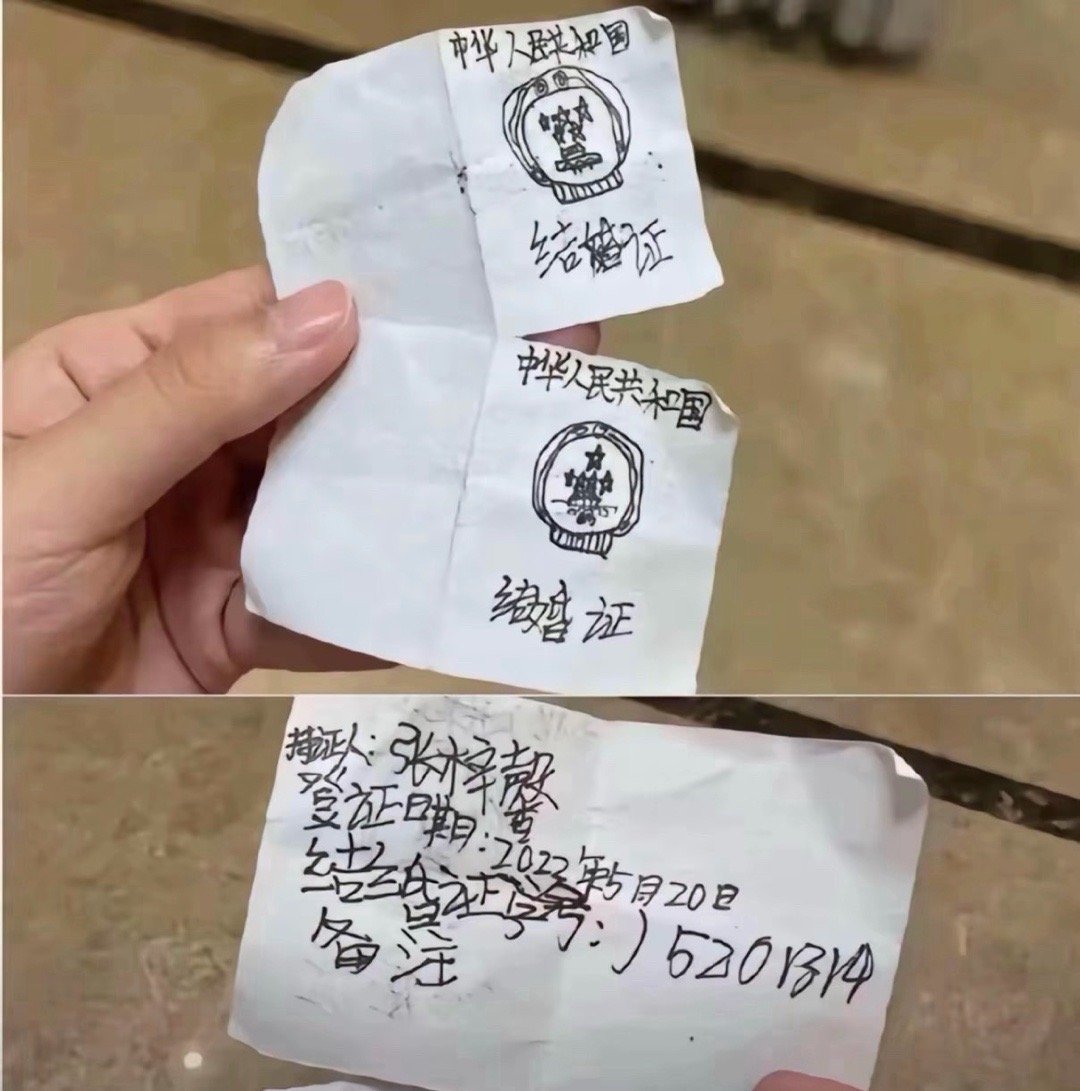 中华人民共和国
结婚证
中华人民共和国
结婚证
持证人:张梓馨
登证日期:2022年5月20日
结婚证字号:J5201314
备注